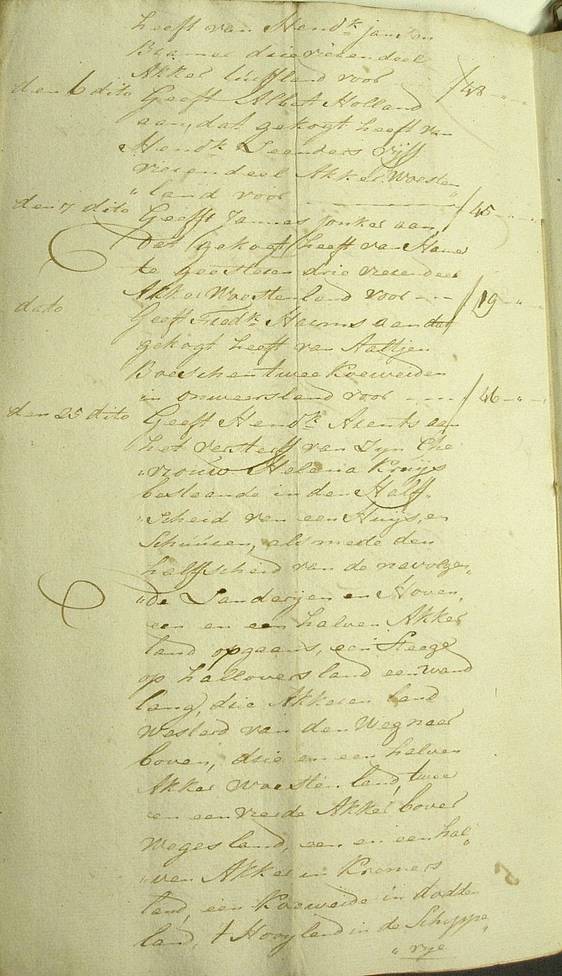 heeft van Hend:k jans en
Bramer drie vierendeel
Akker land voor / 48 -
den 6 dito Geeft Albert Holland
aan, dat gekogt heeft van
Hend:k Leenders vijf
vierendeel Akker Woesten
" land voor / 45 -
den 7 dito Geeft Jannes jonker aan
Dat gekogt heeft van Hane
te Geesteren drie vierendeel
Akker Woestenland voor / 19 -
dato Geeft Fred:k Harms aan dat
gekogt heeft van Aaltjen
Boeschen twee Koeweiden
in onweersland voor / 46 -
den 25 dito Geeft Hend:k Arents aan
het versterf van Zyn Ehe
" vrouw Helena Kruijs
bestaande in den Half
" scheid van een Huijs, en
Schuiren, als mede den
halfscheid van de navolgen
" de Landerijen en Hoven,
een en een halven Akker
land opgaans, een Steege
op hallovers land een wand
lang, drie Akkeren land
Westerd van den Weg naer
boven, drie en een halven
Akker Woesten land, twee
en een vierde Akker bover
Weges land, een en een hal
" ven Akker in Kremers
land, een Koeweide in dodden
land, t Hooyland in de Schippe
" rye